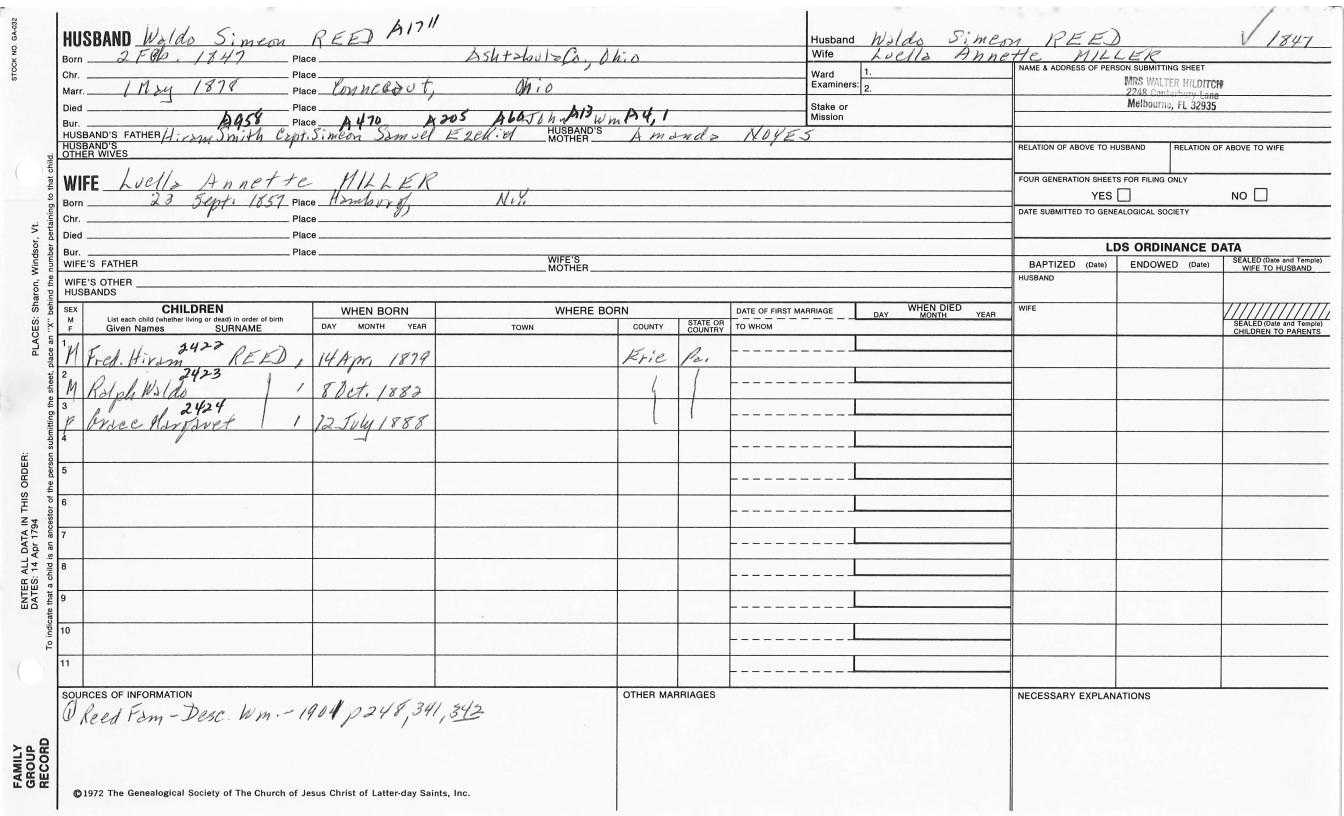 STOCK NO. GA-032
HUSBAND Waldo Simeon REED A1711
Born 2 Feb. 1847 Place Ashtabula Co, Ohio
Chr. Place
Marr. 1 May 1878 Place Conneaut, Ohio
Died Place
Bur. A958 Place A470 A205 A60 John A13 Wm A4,1
HUSBAND'S FATHER Hiram Smith Capt. Simeon Samuel Ezekiel HUSBAND'S MOTHER Amanda NOYES
HUSBAND'S OTHER WIVES
Husband Waldo Simeon REED ✓ 1847
Wife Luella Annette MILLER
Ward Examiners: 1.
2.
Stake or Mission
NAME & ADDRESS OF PERSON SUBMITTING SHEET
MRS WALTER HILDITCH
2248 Canterbury Lane
Melbourne, FL 32935
RELATION OF ABOVE TO HUSBAND RELATION OF ABOVE TO WIFE
FOUR GENERATION SHEETS FOR FILING ONLY
YES NO
DATE SUBMITTED TO GENEALOGICAL SOCIETY
WIFE Luella Annette MILLER
Born 23 Sept. 1857 Place Hamburg, N.Y.
Chr. Place
Died Place
Bur. Place
WIFE'S FATHER WIFE'S MOTHER
WIFE'S OTHER HUSBANDS
LDS ORDINANCE DATA
BAPTIZED (Date) ENDOWED (Date) SEALED (Date and Temple) WIFE TO HUSBAND
HUSBAND
WIFE
SEALED (Date and Temple) CHILDREN TO PARENTS
SEX M F
CHILDREN
List each child (whether living or dead) in order of birth
Given Names SURNAME
WHEN BORN
DAY MONTH YEAR
WHERE BORN
TOWN COUNTY STATE OR COUNTRY
DATE OF FIRST MARRIAGE
TO WHOM
WHEN DIED
DAY MONTH YEAR
1 M Fred. Hiram 2422 REED, 14 Apr. 1879 Erie Pa.
2 M Ralph Waldo 2423 8 Oct. 1882
3 F Grace Margaret 2424 12 July 1888
4
5
6
7
8
9
10
11
SOURCES OF INFORMATION
① Reed Fam - Desc. Wm. - 1901 p248, 341, 342
OTHER MARRIAGES
NECESSARY EXPLANATIONS
©1972 The Genealogical Society of The Church of Jesus Christ of Latter-day Saints, Inc.
FAMILY GROUP RECORD
ENTER ALL DATA IN THIS ORDER:
DATES: 14 Apr 1794
PLACES: Sharon, Windsor, Vt.
To indicate that a child is an ancestor of the person submitting the sheet, place an "X" behind the number pertaining to that child.